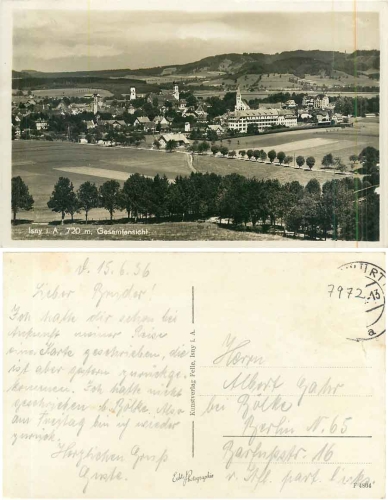 Isny i. A., 720 m. Gesamtansicht
d. 15.6.36
Lieber Bruder!
Ich hatte dir schon bei
Ankunft meiner Reise
eine Karte geschrieben, die
ist aber gestern zurückge-
kommen. Ich hatte nicht
geschrieben b. Bölke. Also
am Freitag bin ich wieder
zurück.
Herzlichen Gruß
Kunstverlag Felle, Isny i. A.
Echte Photographie
7972
13
a
Herrn
Albert
bei Bölke
Berlin N. 65
16
v. part.